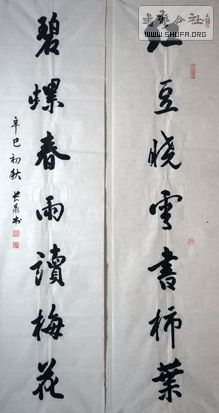 豆晓雪書柿葉
碧螺春雨讀梅花
辛巳初秋
書藝公社
WWW.SHUFA.ORG